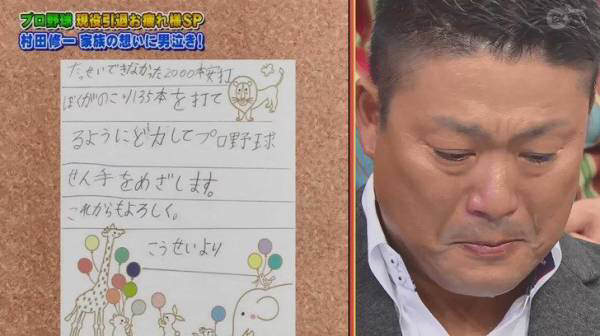 プロ野球 現役引退お疲れ様SP
村田修一 家族の想いに男泣き!
たっせいできなかった2000本安打
ぼくがのこり135本を打て
るようにど力してプロ野球
せん手をめざします。
これからもよろしく。
こうせいより